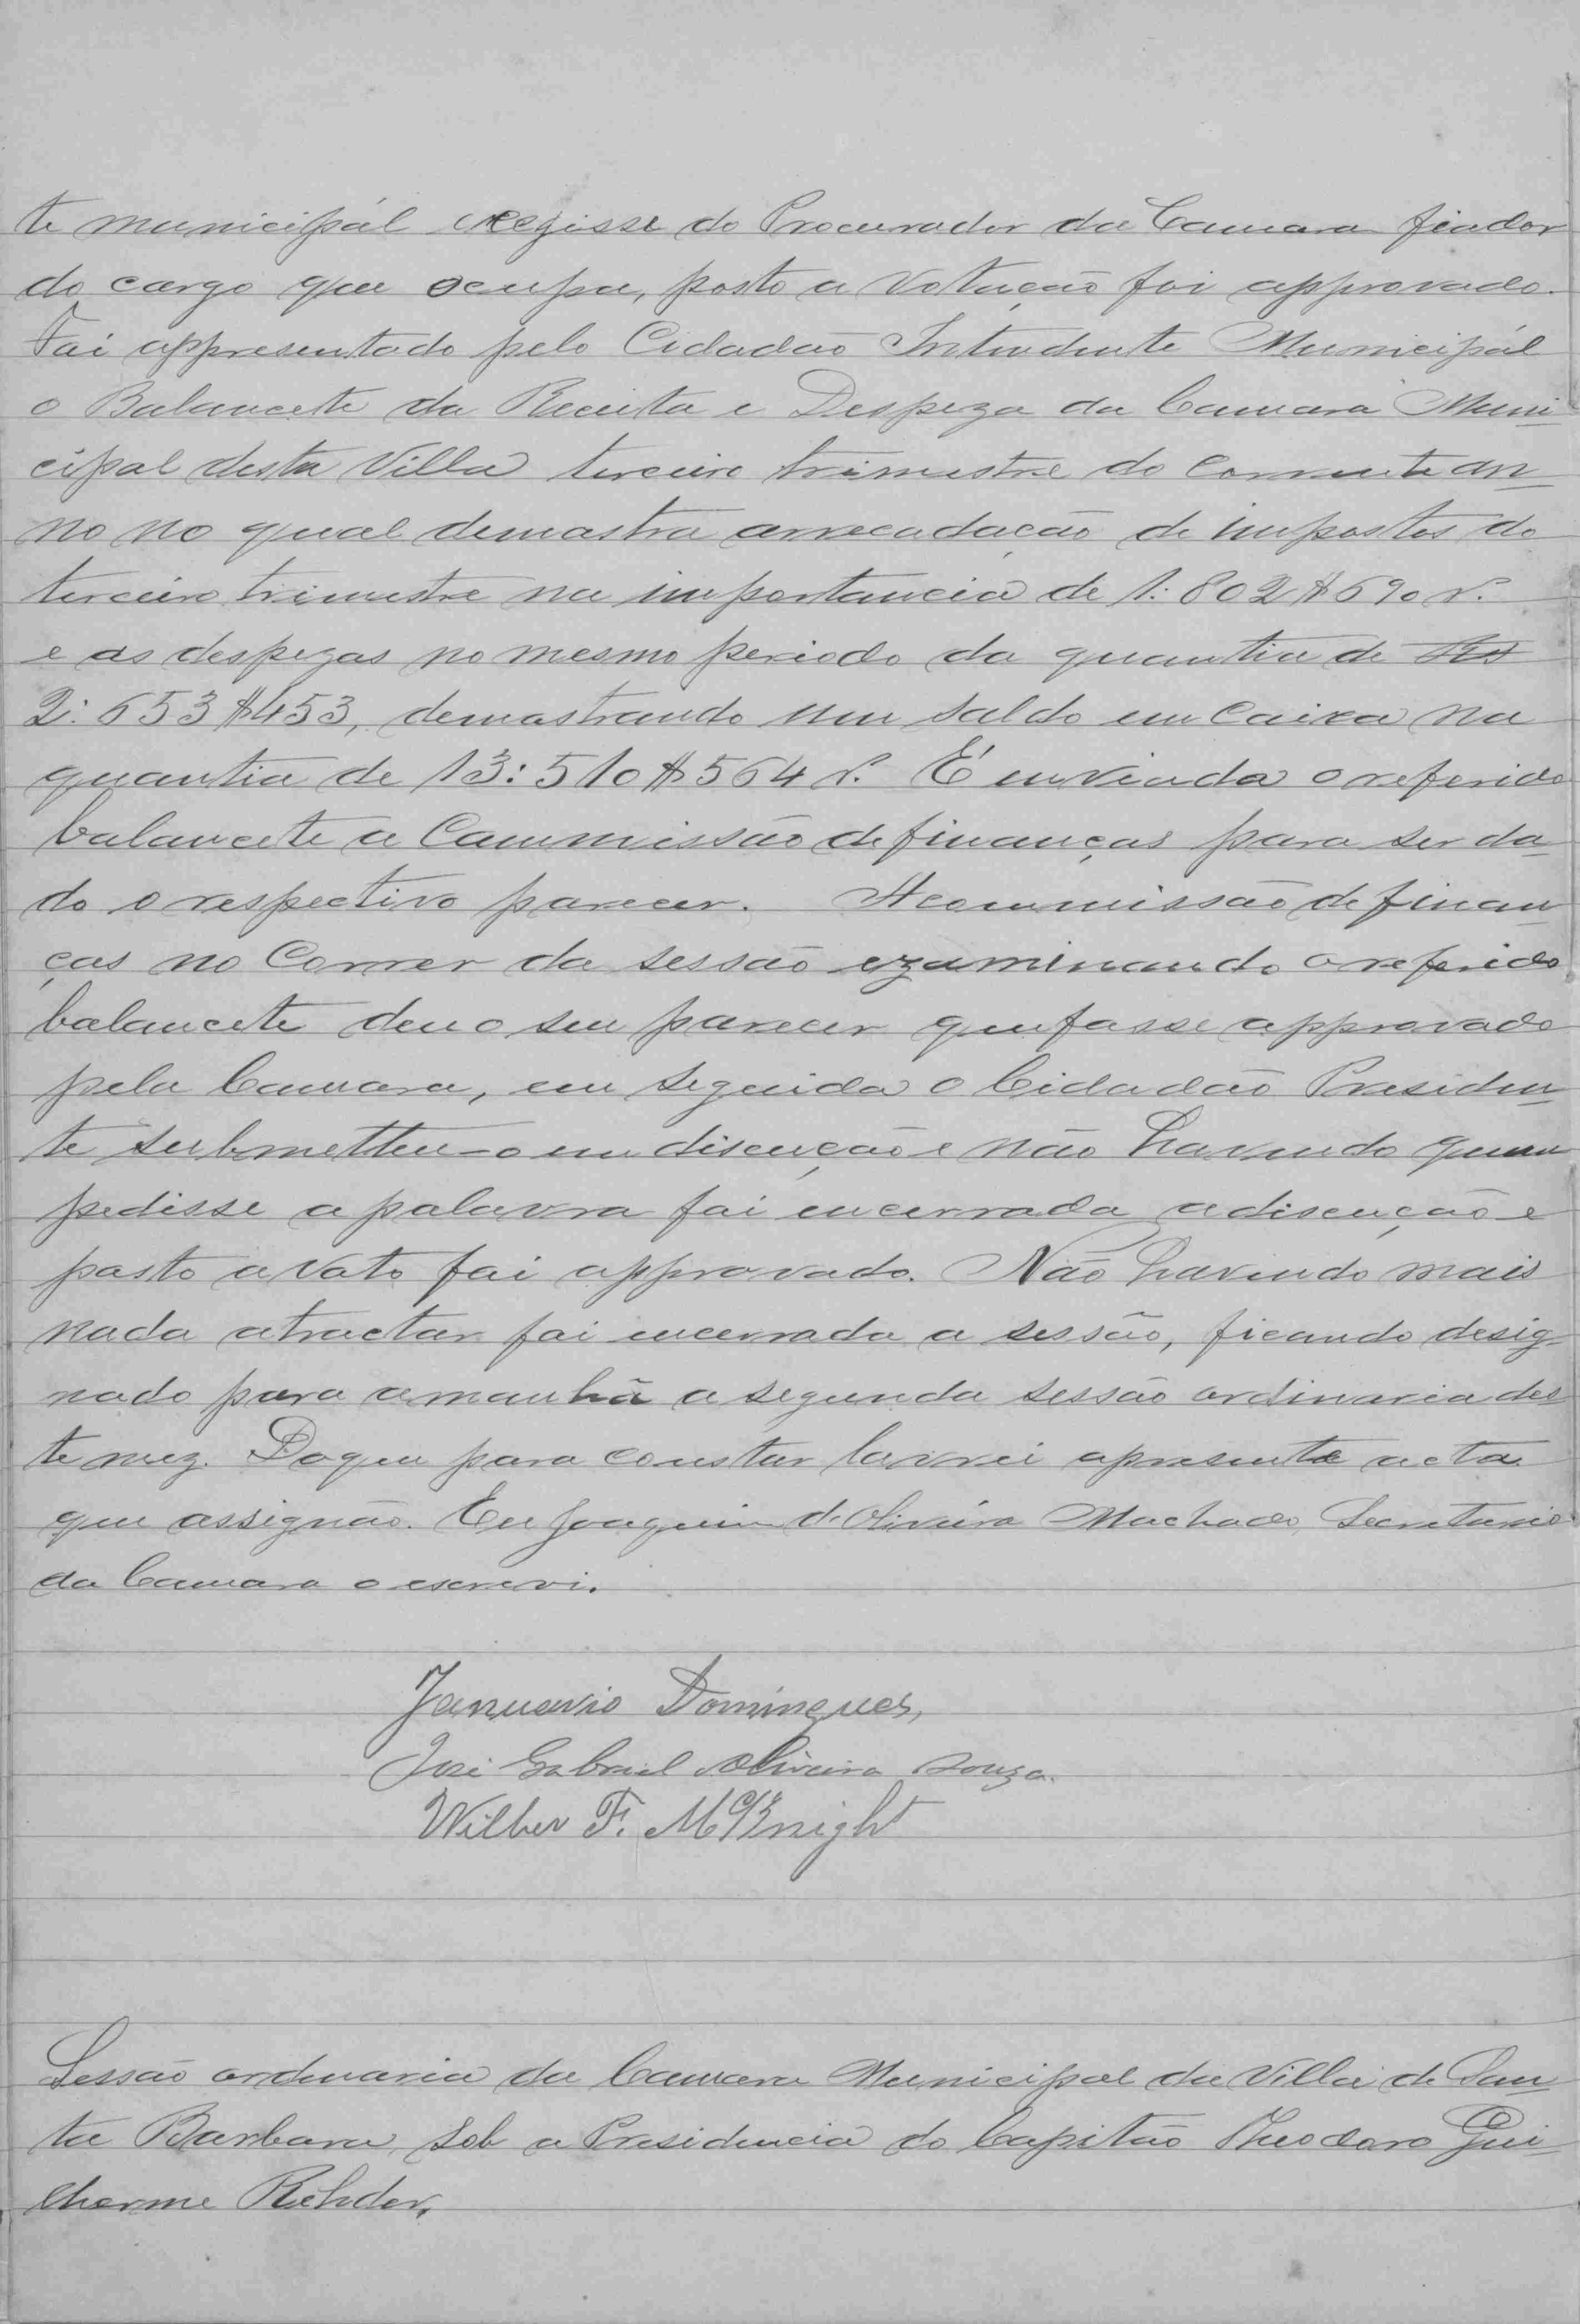 te municipal exegisse do Procurador da Camara fiador
do cargo que ocupa, posto a votação foi approvado.
Foi appresentado pelo Cidadão Intendente Municipál
o Balancete da Receita e Despeza da Camara Muni-
cipal desta Villa terceiro trimestre do corrente an-
no no qual demostra arrecadação de impostos do
terceiro trimestre na importancia de 1:802$690 r.
e as despezas no mesmo periodo da quantia de Rs
2:653$453, demostrando um saldo em Caixa na
quantia de 13:510$564 r. É enviada o referido
balancete a Commissão de finanças para ser da-
do o respectivo parecer. A commissão de finan-
ças no Correr da sessão ezaminando o referido
balancete deu o seu parecer que fosse approvado
pela Camara, em seguida o Cidadão Presiden-
te submetteu-o em discução e não havendo quem
pedisse a palavra foi encerrada a discução e
posto a voto foi approvado. Não havendo mais
nada a tractar foi encerrada a sessão, ficando desig-
nado para amanhã a segunda sessão ordinaria des-
te mez. Do que para constar lavrei a presente acta
que assignão. Eu Joaquim de Oliveira Machado, Secretario
da Camara o escrevi.
Januario Domingues,
José Gabriel Oliveira Souza.
Wilber F. McKnight
Sessão ordenaria da Camara Municipal da Villa de San-
ta Barbara, sob a Presidencia do Capitão Theodoro Gui-
lherme Rehder.